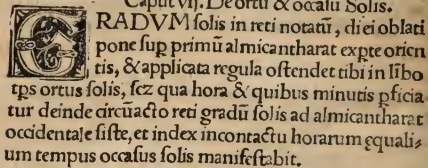 Caput vij. De ortu & occasu Solis.
GRADVM solis in reti notatũ, diei oblati
pone sup primũ almicantharat expte orien
tis, & applicata regula ostendet tibi in lĩbo
tps ortus solis, scz qua hora & quibus minutis pficia
tur deinde circũacto reti gradũ solis ad almicantharat
occidentale siste, et index incontactu horarum ęquali⸗
um tempus occasus solis manifestabit.